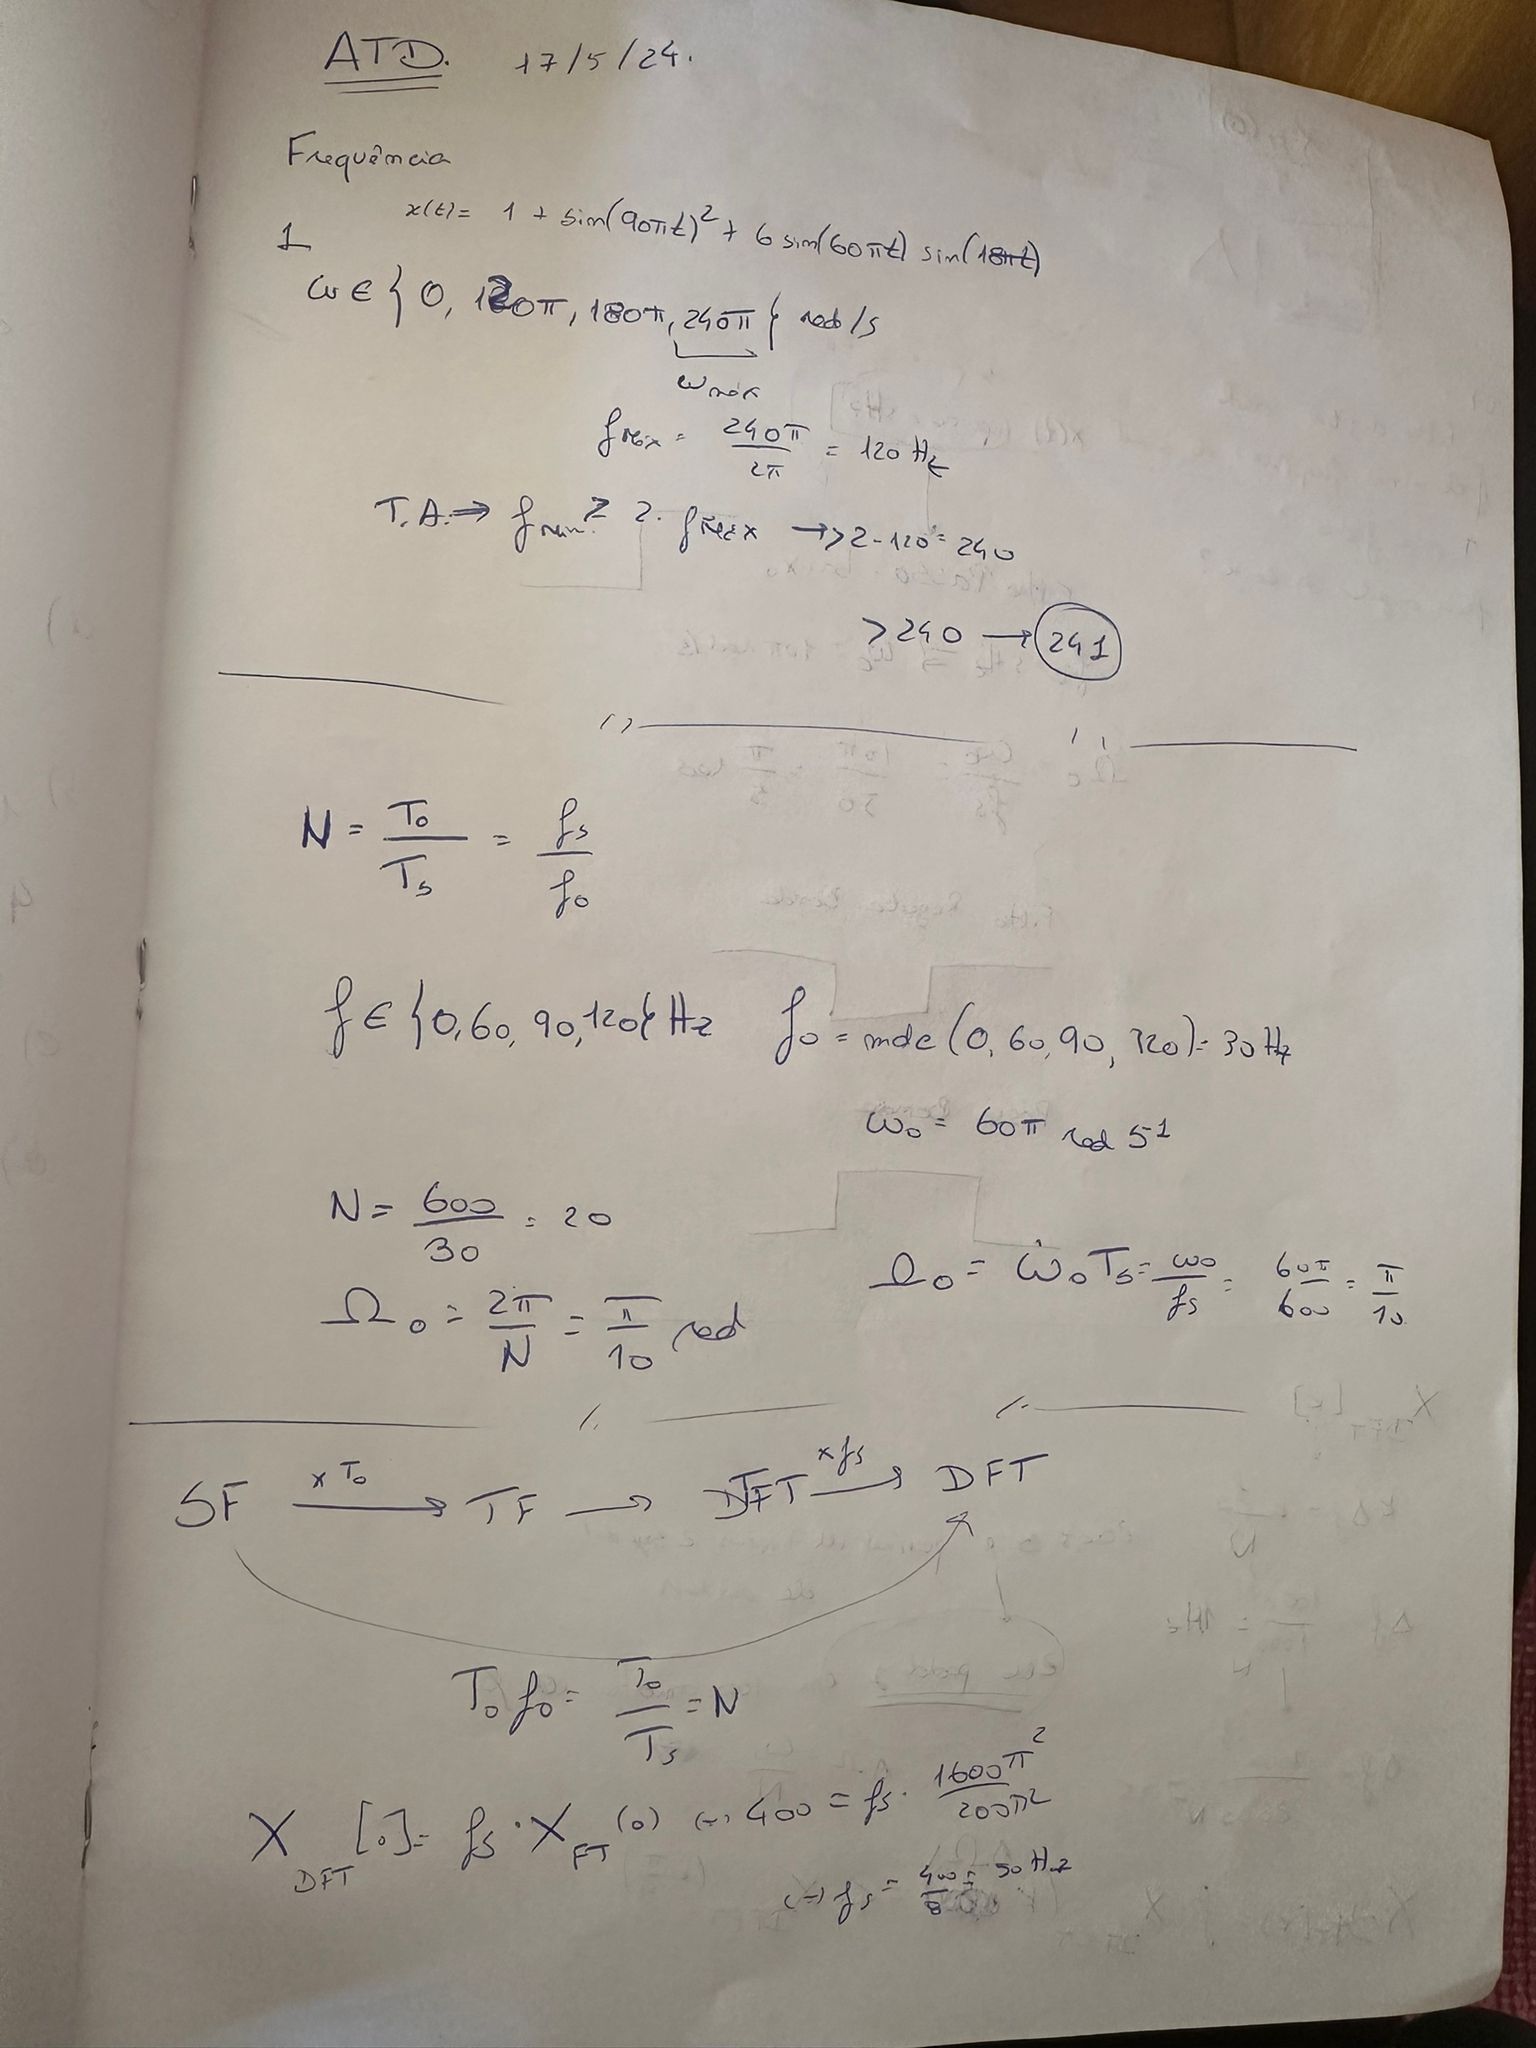 ATD. 17/5/24.
Frequência
x(t) = 1 + sin(90πt)² + 6 sin(60πt) sin(18πt)
1
ω ∈ { 0, 120π, 180π, 240π } rad/s
ωmáx
fmáx = 240π / 2π = 120 Hz
T.A. ⇒ fmin ≥ 2. fmáx → > 2-120 = 240
> 240 → 241
N = T₀ / Ts = fs / f₀
f ∈ { 0, 60, 90, 120 } Hz f₀ = mdc (0, 60, 90, 120) = 30 Hz
ω₀ = 60π rad s⁻¹
N = 600 / 30 = 20
Ω₀ = ω₀Ts = ω₀ / fs = 60π / 600 = π / 10
Ω₀ = 2π / N = π / 10 rad
SF x T₀ → TF → DTFT x fs → DFT
T₀ f₀ = T₀ / Ts = N
X DFT [0] = fs · X FT (0) (-) 400 = fs · 1600π² / 200π²
(-) fs = 400 / 8 = 50 Hz